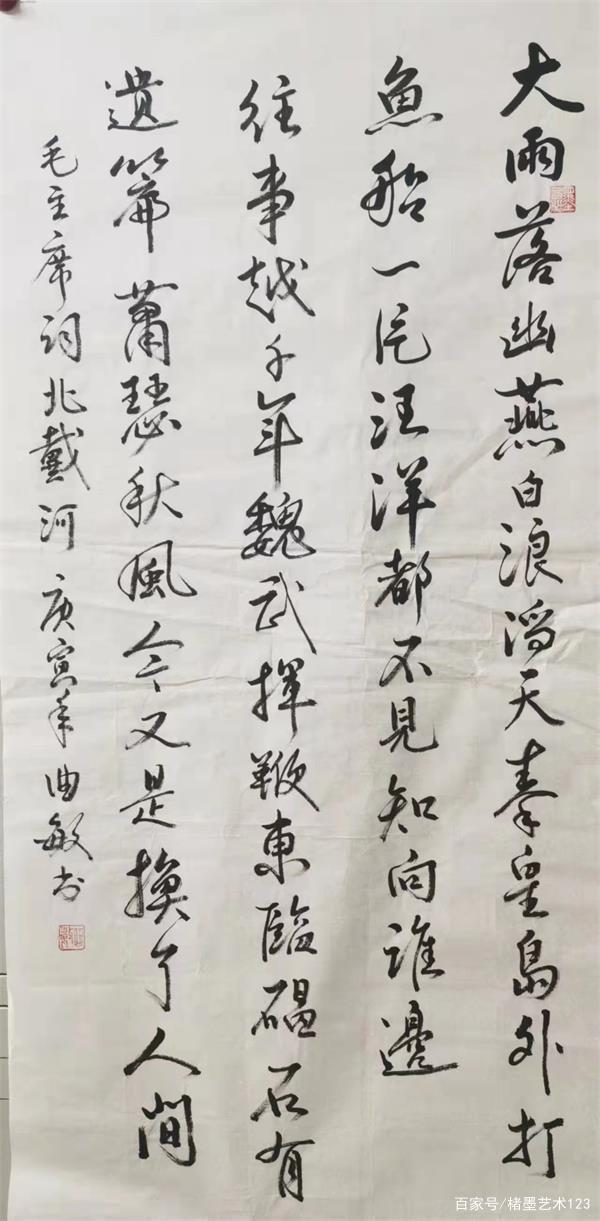 大雨落幽燕白浪滔天秦皇島外打
魚船一片汪洋都不見知向誰邊
往事越千年魏武揮鞭東臨碣石有
遺篇蕭瑟秋風今又是換了人間
毛主席词北戴河 庚寅年曲敏书
百家号/楮墨艺术123